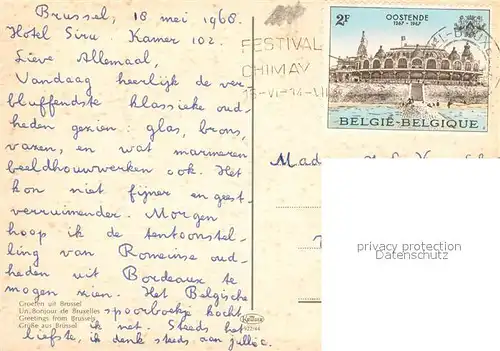 Brussel, 18 mei 1968.
Hotel Siru. Kamer 102.
Lieve Allemaal,
Vandaag heerlijk de ver
bluffendste klassieke oud-
heden gezien: glas, brons,
vazen, en wat marmeren
beeldhouwwerken ook. Het
kon niet fijner en geest-
verruimender. Morgen
hoop ik de tentoonstel-
ling van Romeinse oud-
heden uit Bordeaux te
mogen zien. Het Belgische
spoorboekje kocht
ik net. Steeds het
liefste, ik denk steeds aan jullie.
Groeten uit Brussel
Un Bonjour de Bruxelles
Greetings from Brussels
Grüße aus Brüssel
FESTIVAL
CHIMAY
2F
OOSTENDE
1267-1967
BELGIË-BELGIQUE
Mad
privacy protection
Datenschutz